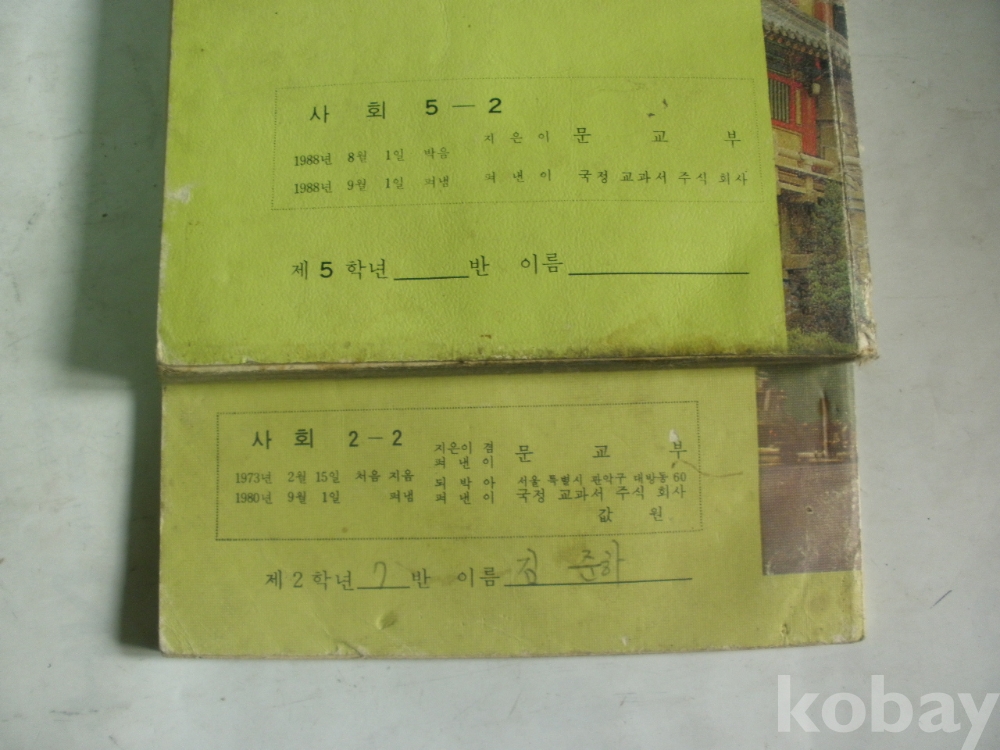 사 회 5-2
지 은 이 문 교 부
1988년 8월 1일 박음
1988년 9월 1일 펴냄 펴 낸 이 국정 교과서 주식 회사
제 5 학년 반 이름
사 회 2-2
지은이 겸 문 교 부
펴 낸 이
1973년 2월 15일 처음 지음 되 박 아 서울 특별시 관악구 대방동 60
1980년 9월 1일 펴냄 펴 낸 이 국정 교과서 주식 회사
값 원
제 2 학년 7 반 이름 김 준하
kobay